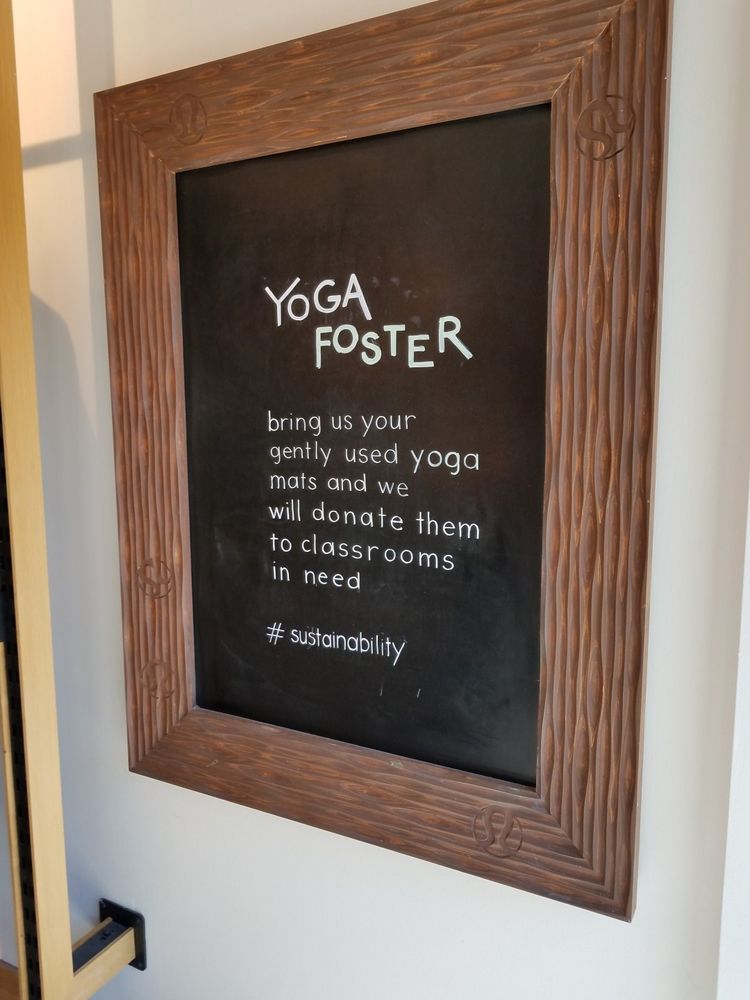 YOGA
FOSTER
bring us your
gently used yoga
mats and we
will donate them
to classrooms
in need
# sustainability